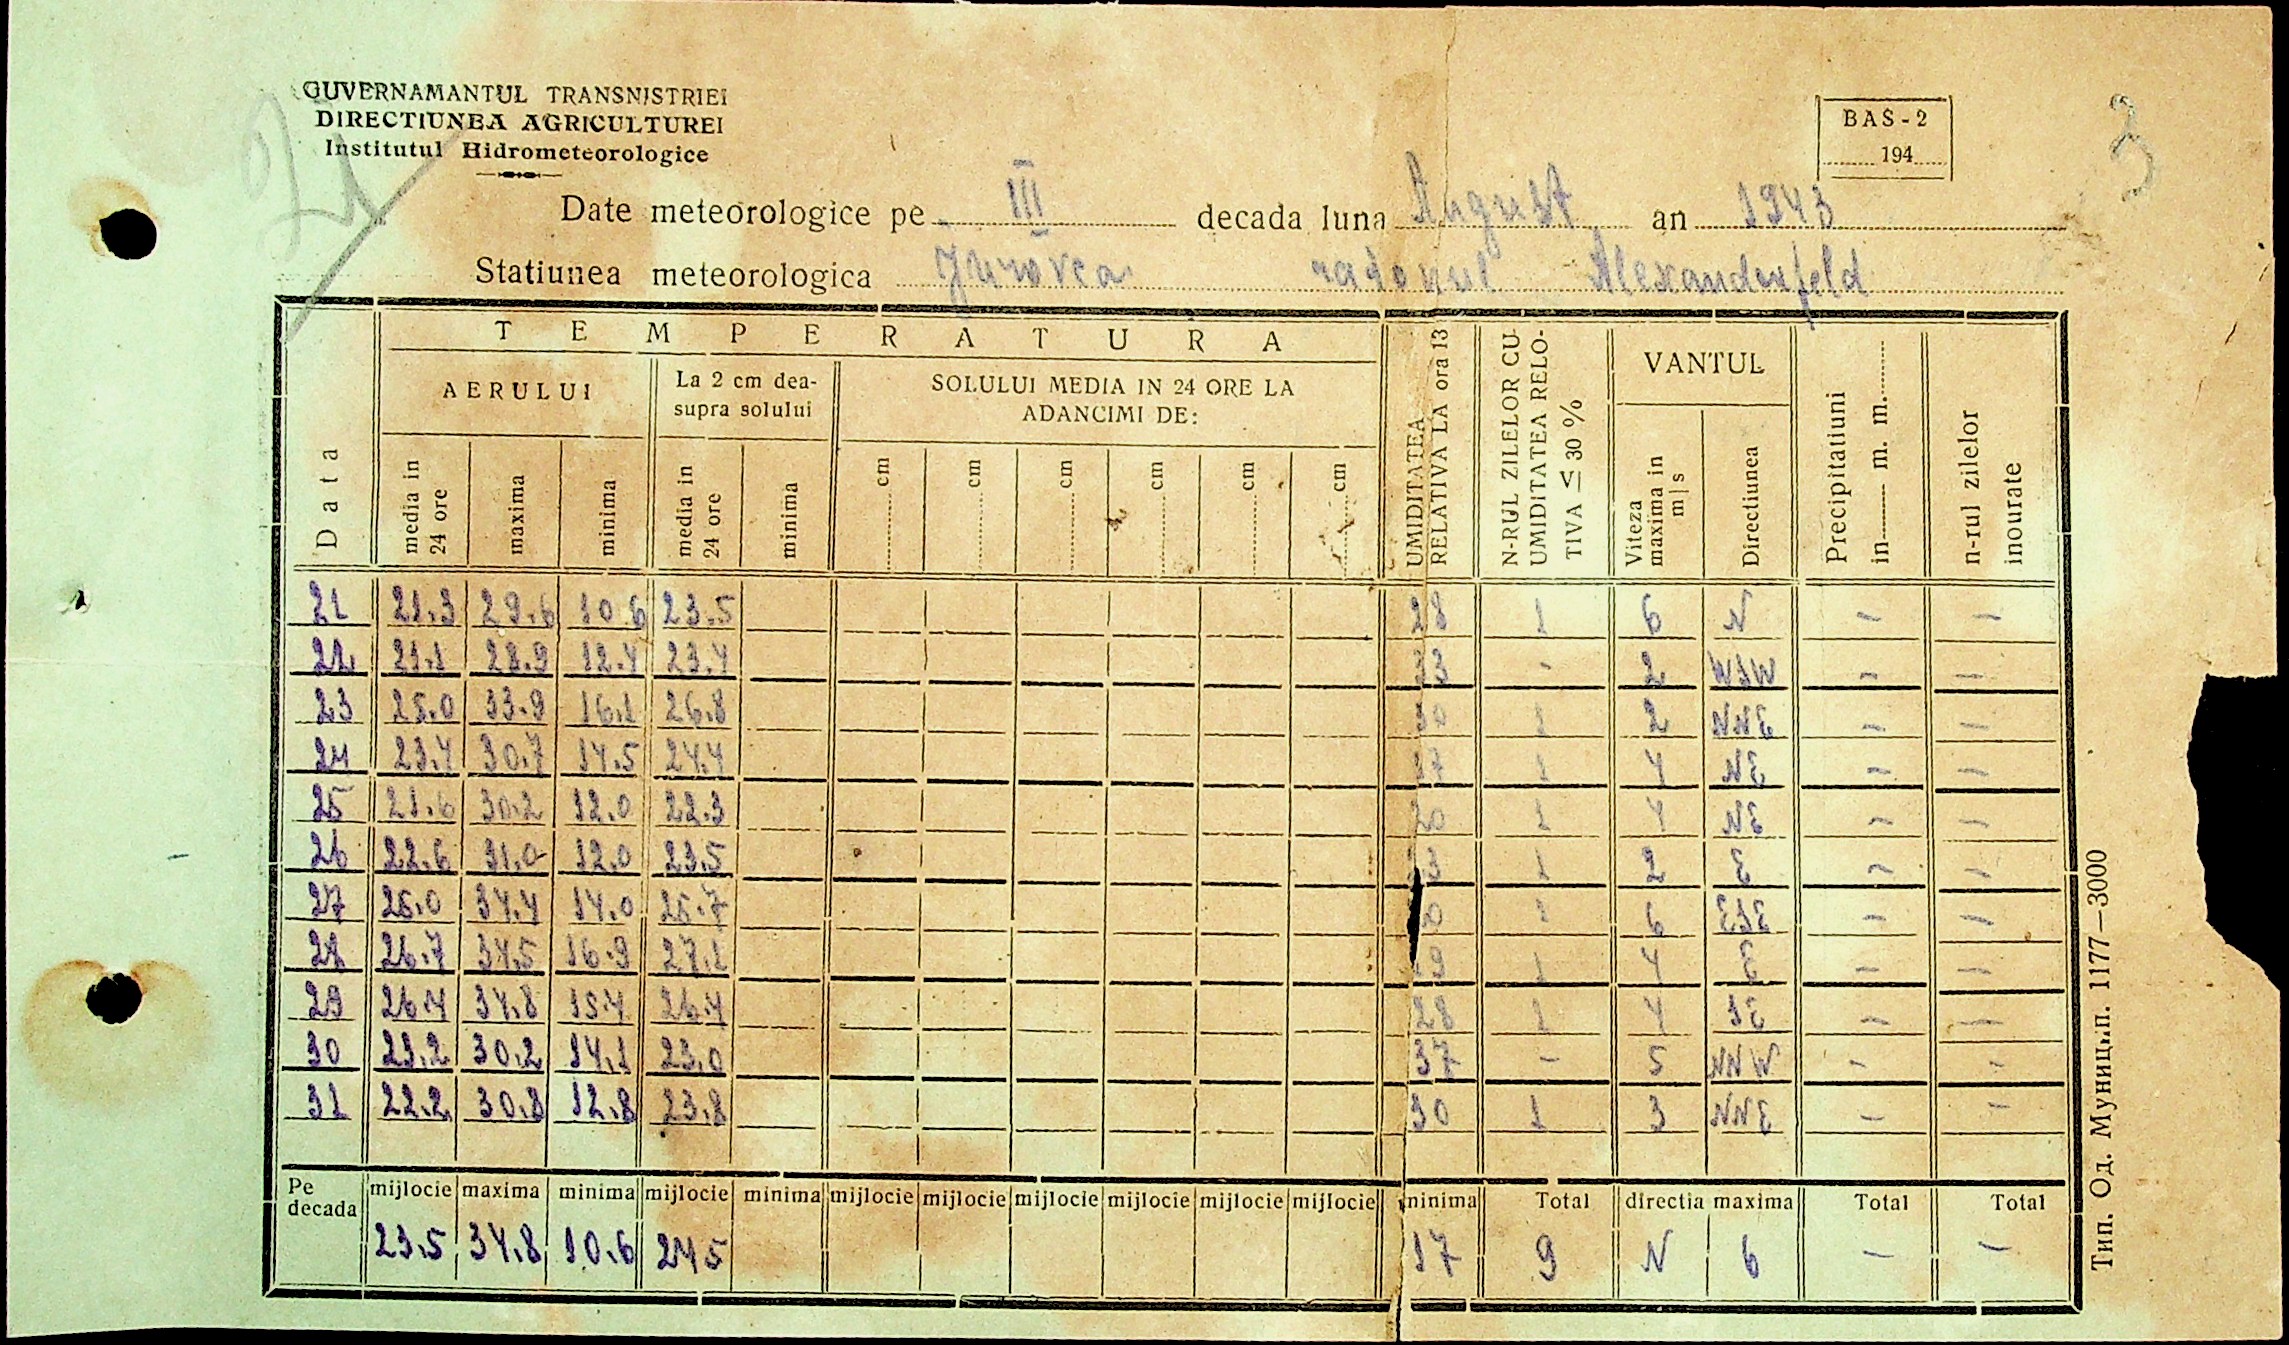 GUVERNAMANTUL TRANSNISTRIEI
DIRECTIUNEA AGRICULTUREI
Institutul Hidrometeorologice
BAS-2
194
3
Date meteorologice pe III decada luna August an 1943
Statiunea meteorologica raionul Alexanderfeld
Data
TEMPERATURA
AERULUI
media in 24 ore
maxima
minima
La 2 cm dea-
supra solului
media in 24 ore
minima
SOLULUI MEDIA IN 24 ORE LA
ADANCIMI DE:
cm cm cm cm cm cm
UMIDITATEA
RELATIVA LA ora 13
N-RUL ZILELOR CU
UMIDITATEA RELO-
TIVA ≤ 30 %
VANTUL
Viteza
maxima in
m|s
Directiunea
Precipitatiuni
in m. m.
n-rul zilelor
inourate
21 21.3 29.6 10.6 23.5 28 1 6 N - -
22 21.1 28.9 12.4 23.4 33 - 2 WSW - -
23 25.0 33.9 16.1 26.8 30 1 2 NNE - -
24 23.4 30.7 14.5 24.4 17 1 4 NE - -
25 21.6 30.2 12.0 22.3 20 1 4 NE - -
26 22.6 31.0 12.0 23.5 1 2 E - -
27 25.0 34.4 14.0 25.7 1 6 ESE - -
28 26.7 34.5 16.9 27.1 1 4 E - -
29 26.4 34.8 15.4 26.4 28 1 4 SE - -
30 23.2 30.2 14.1 23.0 37 - 5 NNW - -
31 22.2 30.8 12.8 23.8 30 1 3 NNE - -
Pe decada
mijlocie maxima minima mijlocie minima mijlocie mijlocie mijlocie mijlocie mijlocie mijlocie minima Total directia maxima Total Total
23.5 34.8 10.6 24.5 17 9 N 6 - -
Тип. Од. Муницип. п. 1177—3000